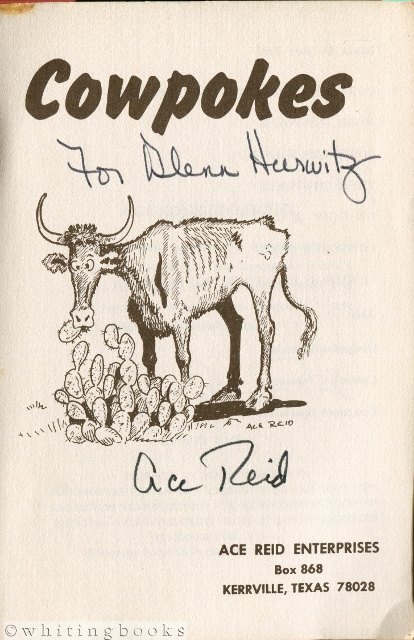 Cowpokes
For Glenn Hurwitz
ACE REID
Ace Reid
ACE REID ENTERPRISES
Box 868
KERRVILLE, TEXAS 78028
©whitingbooks